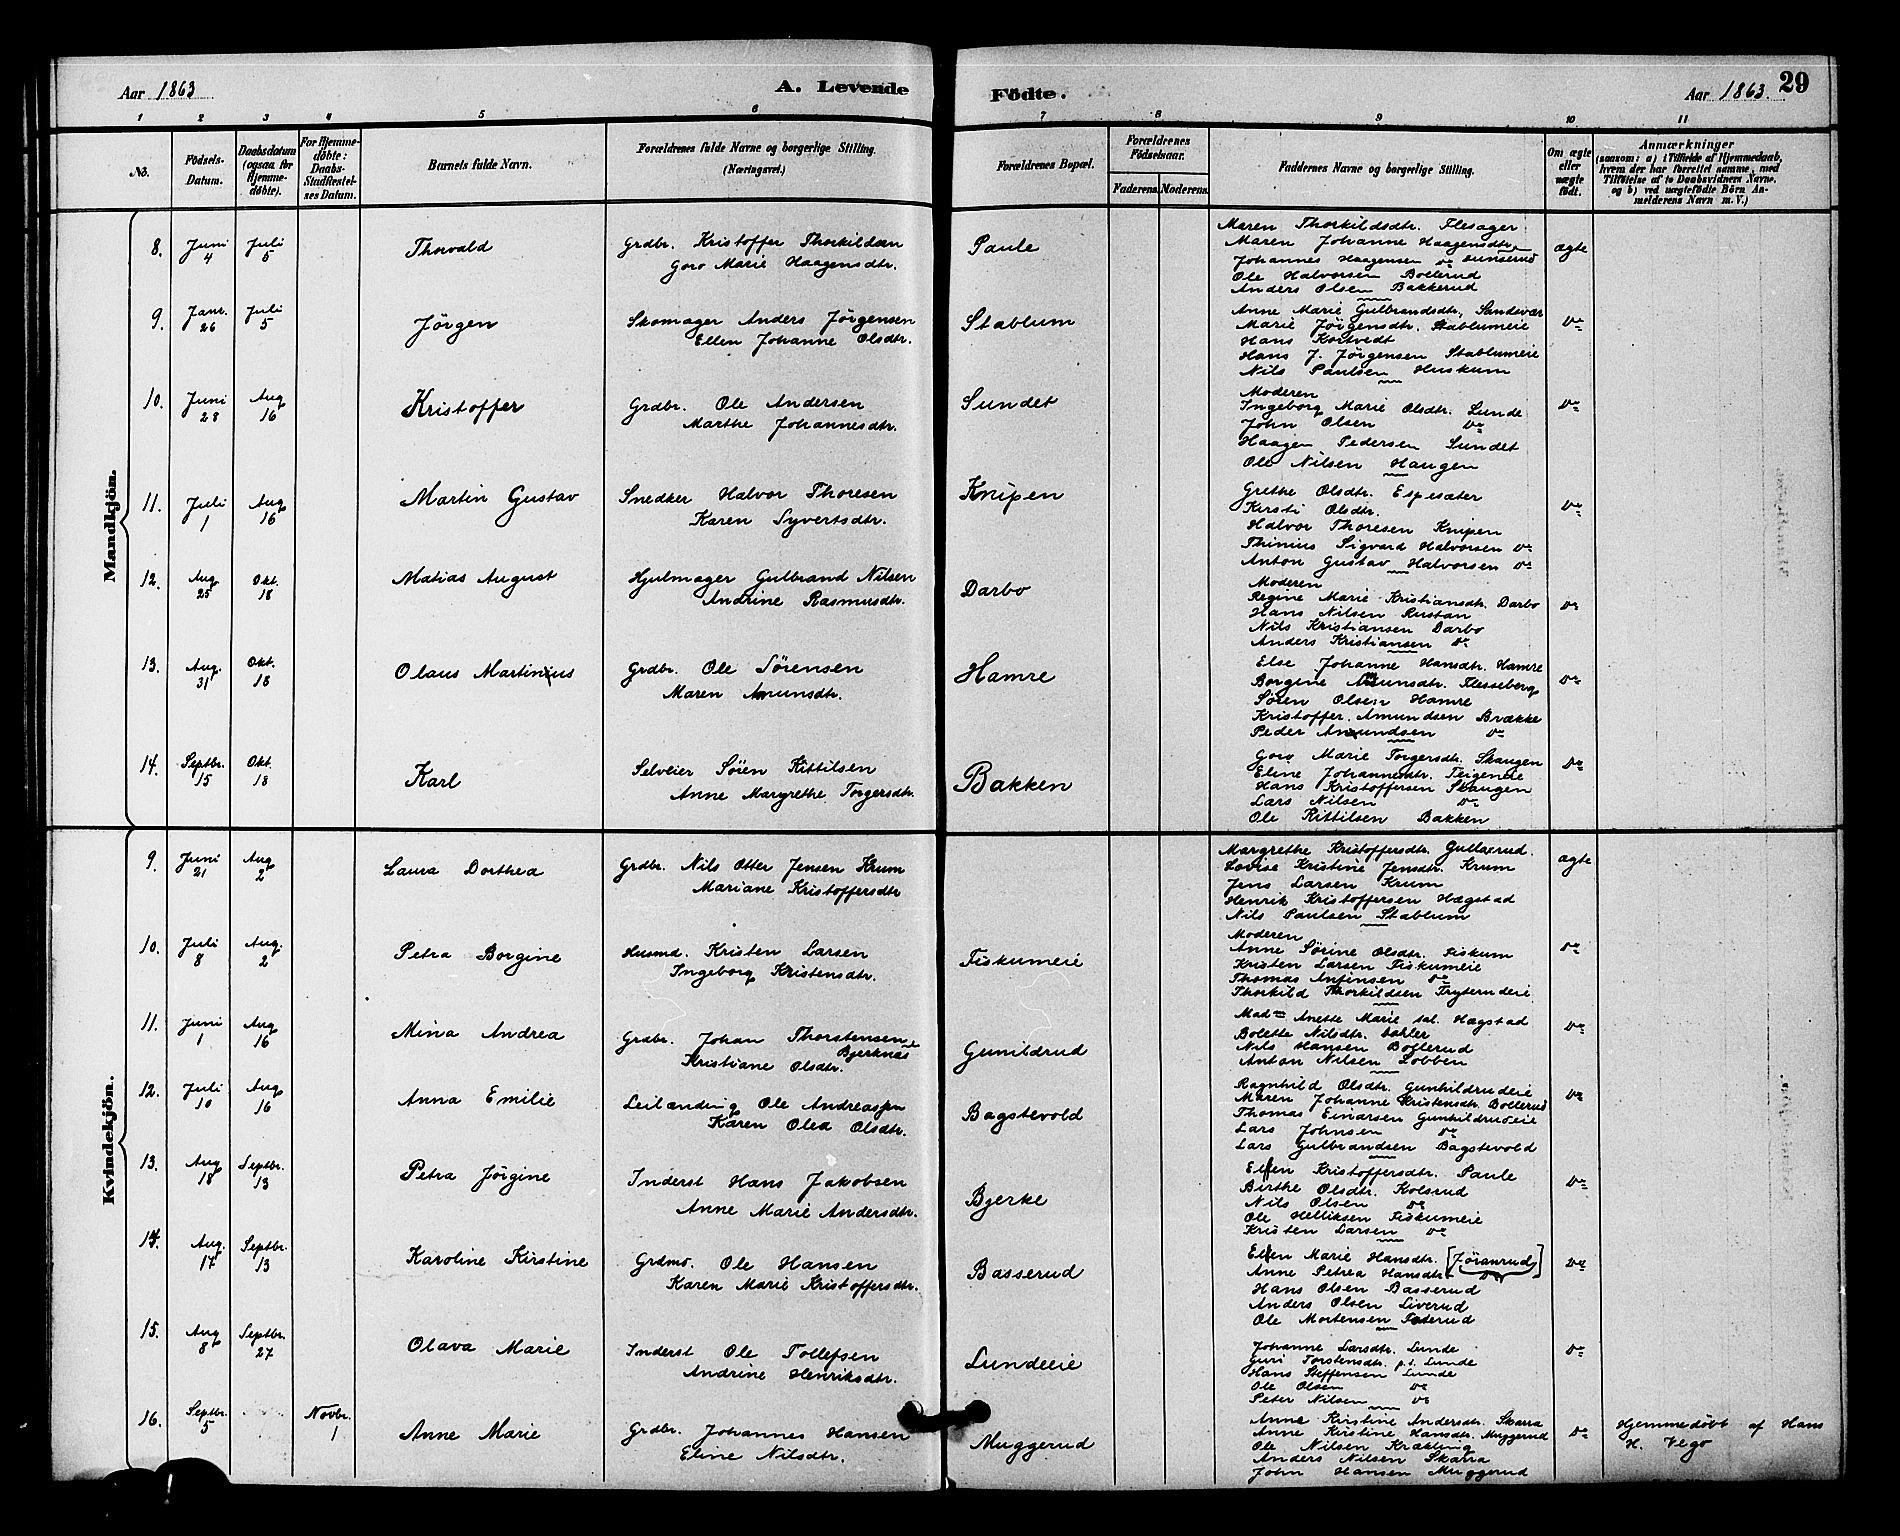 Aar 1863
A. Levende
Födte.
Aar 1863.
29
1 2 3 4 5 6 7 8 9 10 11
No.
Födsels-Datum.
Daabsdatum (ogsaa for Hjemme-döbte).
For Hjemme-döbte: Daabs-Stadfæstel-ses Datum.
Barnets fulde Navn.
Forældrenes fulde Navne og borgerlige Stilling.
(Næringsvei.)
Forældrenes Bopæl.
Forældrenes Födselsaar.
Faderens. Moderens.
Faddernes Navne og borgerlige Stilling.
Om ægte eller uægte födt.
Anmærkninger
(saasom: a) i Tilfælde af Hjemmedaab,
hvem der har forrettet samme, med
Tilföielse af to Daabsvidners Navne,
og b) ved uægtefödte Börn An-
melderens Navn m. V.)
Mandkjön.
8. Juni 4 Juli 5 Thorvald
Grdbr. Kristoffer Thorkildsen
Goro Marie Haagensdtr.
Paule
Maren Thorkildsdtr. Flesager
Maren Johanne Haagensdtr.
Johannes Haagensen do
Ole Halvorsen Bollerud
Anders Olsen Bakkerud
ægte
9. Janr. 26 Juli 5 Jörgen
Skomager Anders Jörgensen
Ellen Johanne Olsdtr.
Stablum
Anne Marie Gulbrandsdtr. Sandsvær
Marie Jörgensdtr. Stablumeie
Hans Kortvedt
Hans J. Jörgensen Stablumeie
Nils Paulsen Huskum
do
10. Juni 28 Aug 16 Kristoffer
Grdbr. Ole Andersen
Marthe Johannesdtr.
Sundet
Moderen
Ingeborg Marie Olsdtr. Lunde
John Olsen do
Haagen Pedersen Sundet
Ole Nilsen Haugen
do
11. Juli 1 Aug 16 Martin Gustav
Snedker Halvor Thoresen
Karen Syvertsdtr.
Knipen
Grethe Olsdtr. Espesæter
Kirsti Olsdtr.
Halvor Thoresen Knipen
Thinius Sigvard Halvorsen do
Anton Gustav Halvorsen do
do
12. Aug 25 Okt. 18 Matias August
Hjulmager Gulbrand Nilsen
Andrine Rasmusdtr.
Darbo
Moderen
Regine Marie Kristiansdtr. Darbo
Hans Nilsen Rustan
Nils Kristiansen Darbo
Anders Kristiansen do
do
13. Aug. 31 Okt. 18 Olaus Martinius
Grdbr. Ole Sörensen
Maren Amunsdtr.
Hamre
Else Johanne Hansdtr. Hamre
Borgine Amunsdtr. Flesseberg
Sören Olsen Hamre
Kristoffer Amundsen Brække
Peder Amundsen do
do
14. Septbr. 15 Okt. 18 Karl
Selveier Sören Kittilsen
Anne Margrethe Torgersdtr.
Bakken
Goro Marie Torgersdtr. Skaugen
Eline Johannesdtr. Teigeneie
Hans Kristoffersen Skaugen
Lars Nilsen do
Ole Kittilsen Bakken
do
Kvindekjön.
9. Juni 21 Aug 2 Laura Dorthea
Grdbr. Nils Otter Jensen Krum
Mariane Kristoffersdtr
Margrethe Kristoffersdtr. Gullaxrud.
Lovise Kristine Jensdtr. Krum
Jens Larsen Krum
Henrik Kristoffersen Hægstad
Nils Paulsen Stablum
ægte
10. Juli 8 Aug. 2 Petra Borgine
Husmd. Kristen Larsen
Ingeborg Kristensdtr.
Fiskumeie
Moderen
Anne Sörine Olsdtr. Fiskum
Kristen Larsen Fiskumeie
Thomas Anfinsen do
Thorkild Thorkildsen Fryterudeie
do
11. Juni 1 Aug 16 Mina Andrea
Grdbr. Johan Thorstensen
Bjerknæs
Kristiane Olsdtr.
Gunildrud
Mad= Anette Marie sal. Hægstad
Bolette Nilsdtr.
Nils Hansen Bollerud
Anton Nilsen Lobben
do
12. Juli 10 Aug 16 Anna Emilie
Leilænding Ole Andreassen
Karen Olea Olsdtr.
Bagstevold
Ragnhild Olsdtr. Gunhildrudeie
Maren Johanne Kristensdtr. Bollerud
Thomas Einarsen Gunhildrudeie
Lars Johnsen do
Lars Gulbrandsen Bagstevold
do
13. Aug 18 Septbr. 13 Petra Jörgine
Inderst Hans Jakobsen
Anne Marie Andersdtr.
Bjerke
Ellen Kristoffersdtr. Paule
Birthe Olsdtr. Kolsrud
Nils Olsen do
Ole Helliksen Fiskumeie
Kristen Larsen do
do
14. Aug. 17 Septbr. 13 Karoline Kirstine
Grdmd. Ole Hansen
Karen Marie Kristoffersdtr.
Basserud
Ellen Marie Hansdtr. [Jöranrud]
Anne Petrea Hansdtr. do
Hans Olsen Basserud
Anders Olsen Liverud
Ole Mortensen
do
15. Aug 8 Septbr. 27 Olava Marie
Inderst Ole Tollefsen
Andrine Henriksdtr.
Lundeeie
Johanne Larsdtr. Lunde
Guri Torstensdtr. p.t. Lunde
Hans Steffensen Lunde
Ole Olsen do
Peter Nilsen do
do
16. Septbr. 5 Novbr. 1 Anne Marie
Grdbr. Johannes Hansen
Eline Nilsdtr.
Muggerud
Anne Kirstine Andersdtr. Skarra
Anne Kirstine Hansdtr. Muggerud
Ole Nilsen Krækling
Anders Nilsen Skarra
John Hansen Muggerud
do
Hjemmedöbt af Hans
H. Vego